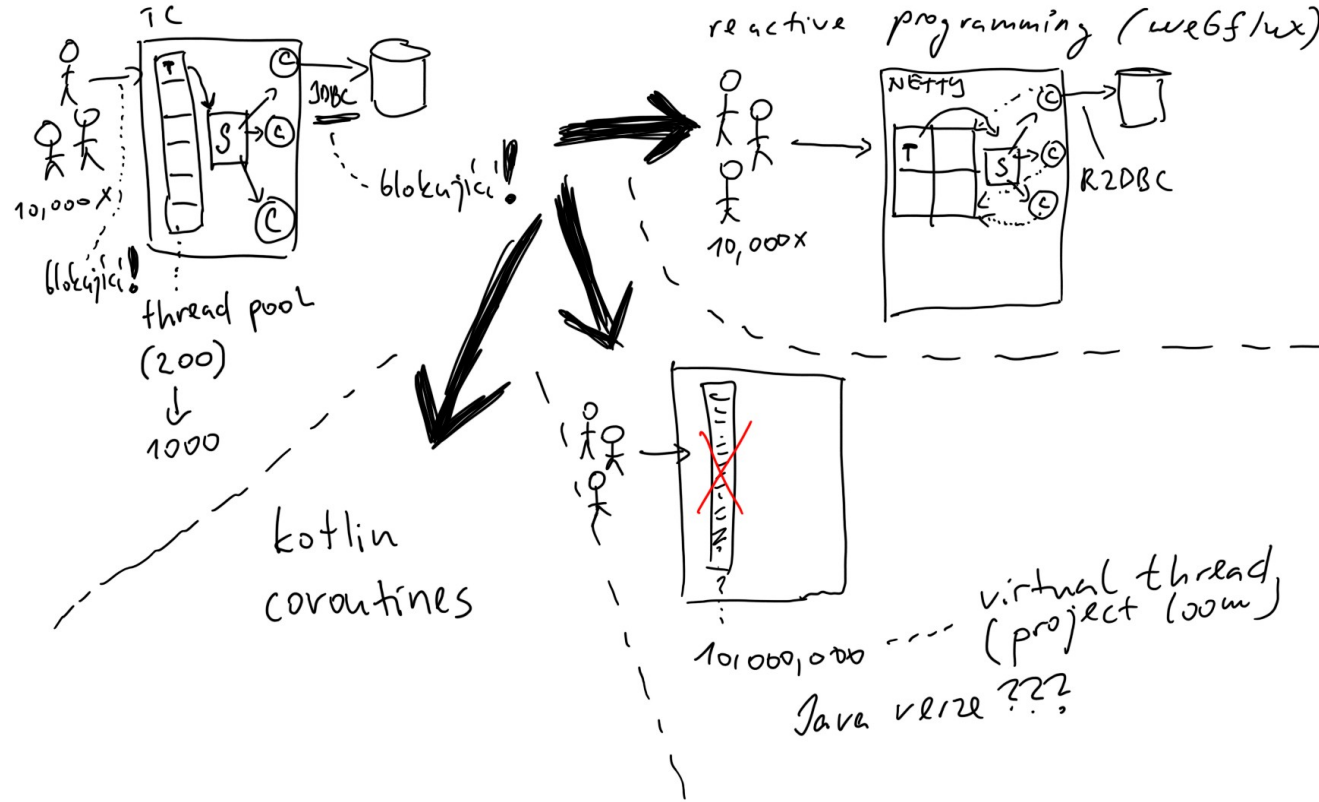 TC
T
S
C
C
C
JDBC
blokující!
10,000x
blokující!
thread pool
(200)
1000
reactive programming (webflux)
NETTY
T
S
C
C
C
R2DBC
10,000x
kotlin
coroutines
?
10,000,000
virtual thread
(project loom)
Java verze ???